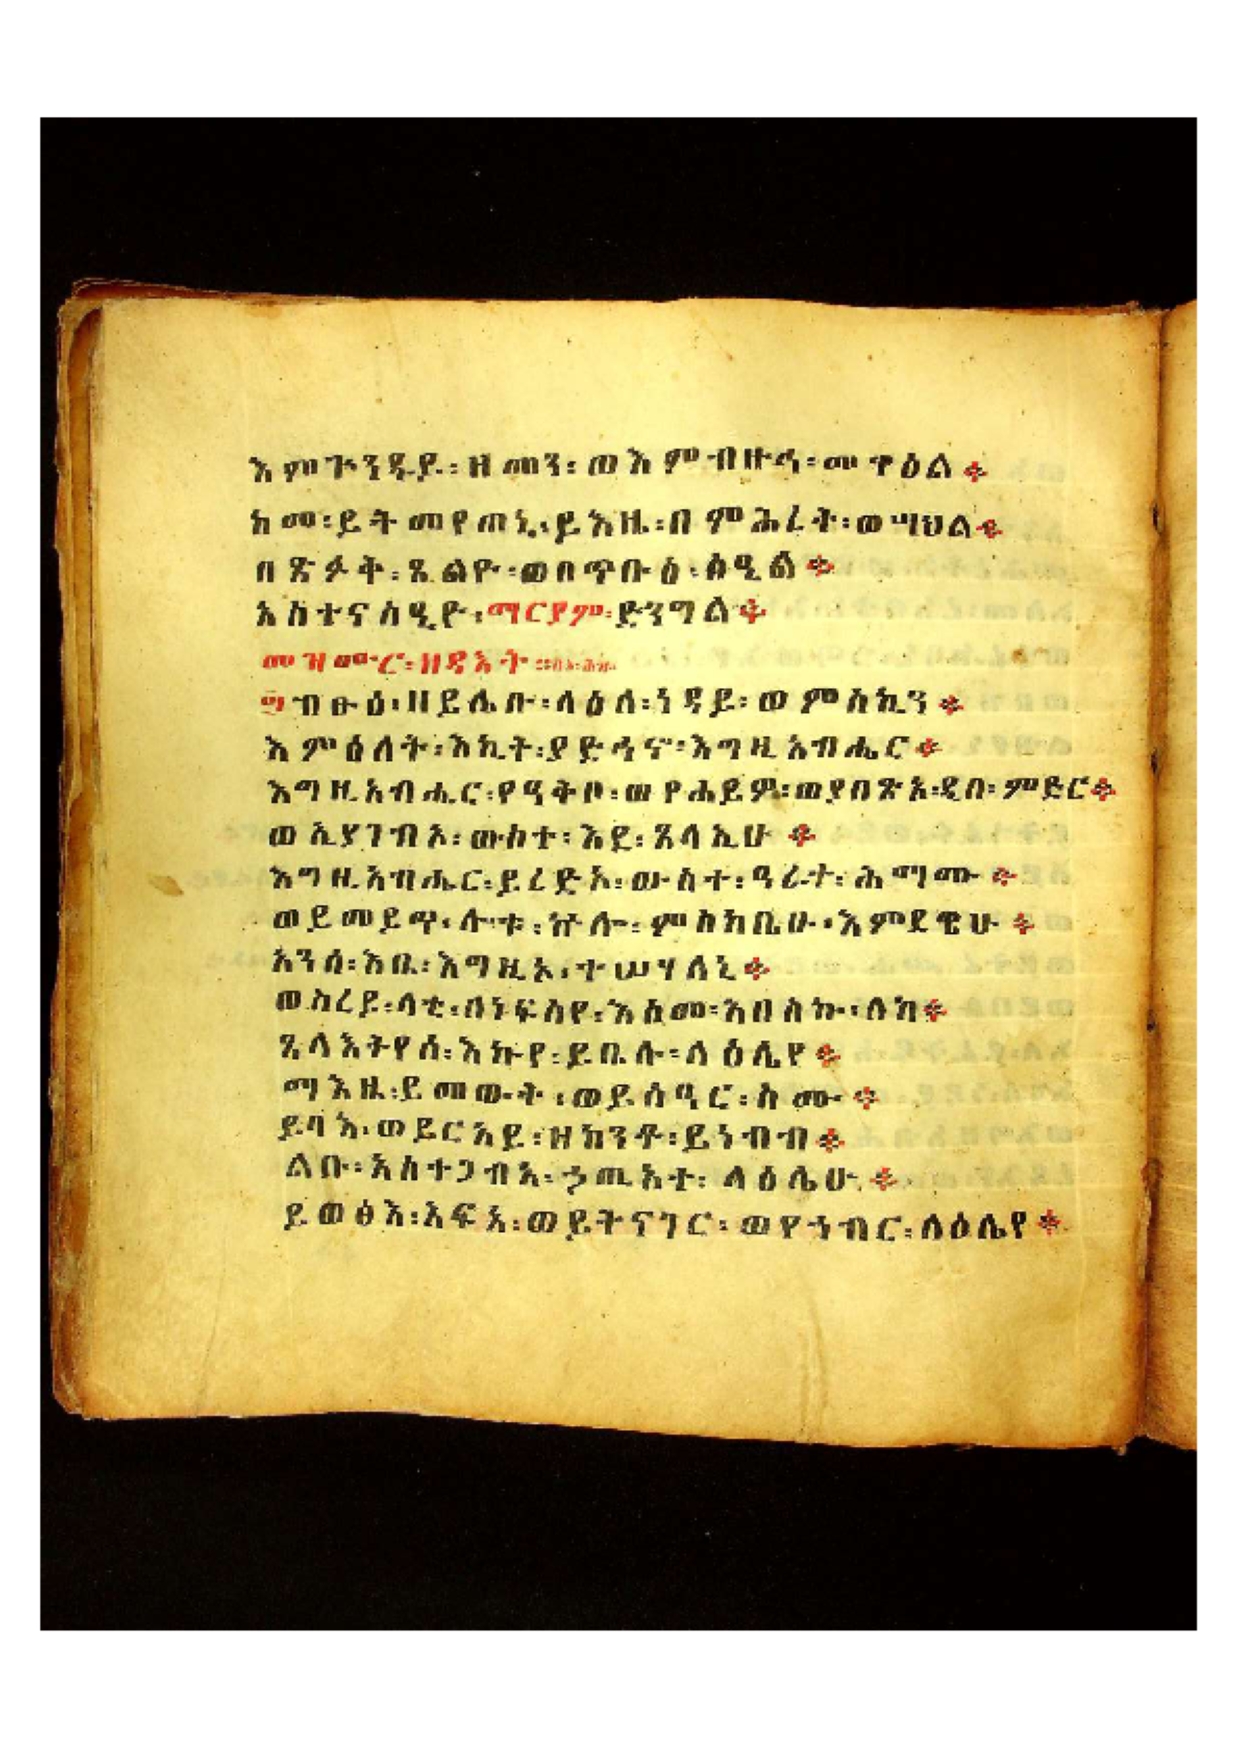 እምጕንዱይ፡ዘመን፡ወእምብዙኅ፡መዋዕል፨
ከመ፡ይትመየጠኒ፡ይእዜ፡በምሕረት፡ወሣህል፨
በጽፉቅ፡ጼልዮ፡ወበጥቡዕ፡ፅሂል፨
አስተናስሂዮ፡ማርያም፡ድንግል፨
መዝሙር፡ዘዳእት፡
ብፁዕ፡ዘይሌቡ፡ላዕለ፡ነዳይ፡ወምስኪን፨
እምዕለት፡እኪት፡ያድኅኖ፡እግዚአብሔር፨
እግዚአብሔር፡የዓቅቦ፡ወየሐይዎ፡ወያበጽኦ፡ዲበ፡ምድር፨
ወኢያገብኦ፡ውስተ፡እደ፡ጸላኢሁ፨
እግዚአብሔር፡ይረድኦ፡ውስተ፡ዓራተ፡ሕማሙ፨
ወይመይጥ፡ሎቱ፡ኵሎ፡ምስካቤሁ፡እምደዌሁ፨
አንሰ፡እቤ፡እግዚኦ፡ተሠሃለኒ፨
ወስረይ፡ላቲ፡ለነፍስየ፡እስመ፡አበስኩ፡ለከ፨
ጸላእትየሰ፡እኩየ፡ይቤሉ፡ላዕሌየ፨
ማእዜ፡ይመውት፡ወይሰዓር፡ስሙ፨
ይባእ፡ወይርአይ፡ዘከንቶ፡ይነብብ፨
ልቡ፡አስተጋብአ፡ኃጢአተ፡ላዕሌሁ፨
ይወፅእ፡አፍአ፡ወይትናገር፡ወየኀብር፡ላዕሌየ፨